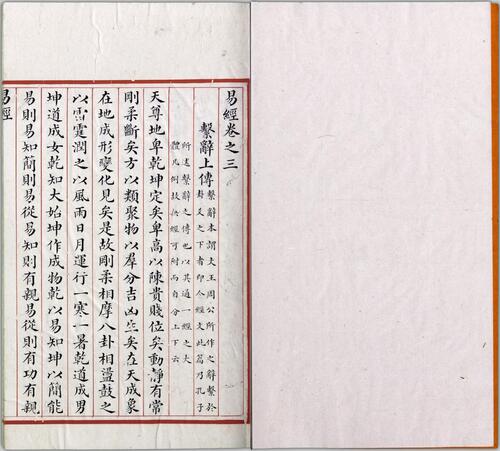 易經卷之三
繫辭上傳
繫辭本謂文王周公所作之辭繫於
卦爻之下者即今經文此篇乃孔子
所述繫辭之傳也以其通一經之大
體凡例故无經可附而自分上下云
天尊地卑乾坤定矣卑高以陳貴賤位矣動靜有常
剛柔斷矣方以類聚物以羣分吉凶生矣在天成象
在地成形變化見矣是故剛柔相摩八卦相盪鼓之
以雷霆潤之以風雨日月運行一寒一暑乾道成男
坤道成女乾知大始坤作成物乾以易知坤以簡能
易則易知簡則易從易知則有親易從則有功有親
易經